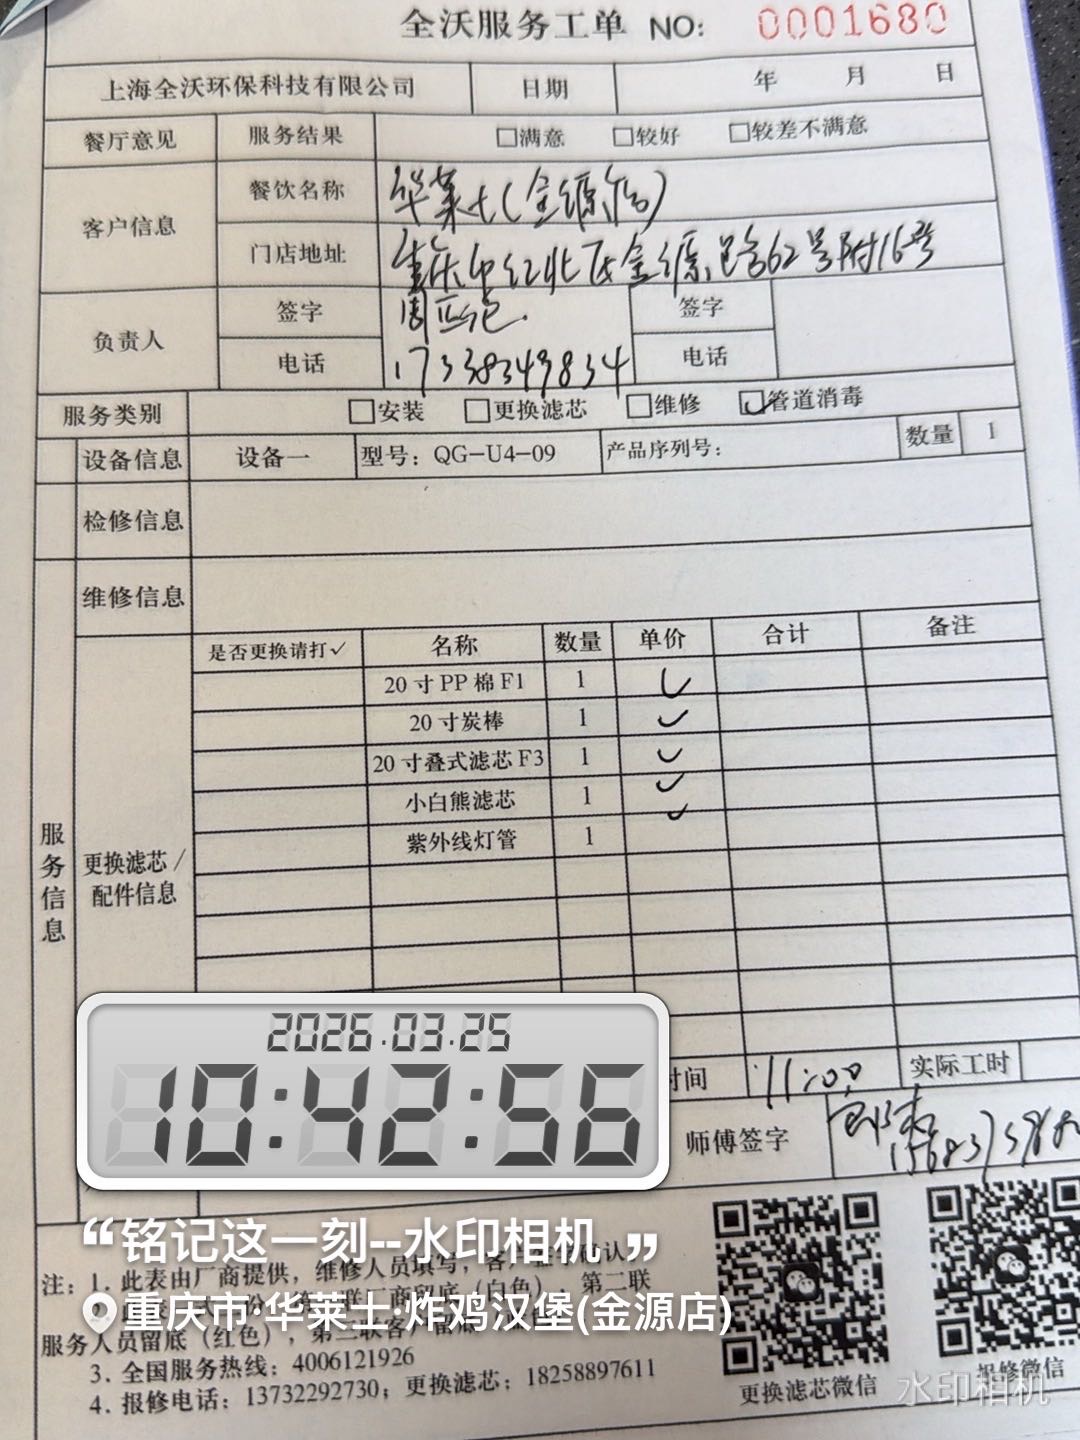 全沃服务工单 NO: 0001680
上海全沃环保科技有限公司 日期 年 月 日
餐厅意见 服务结果 □满意 □较好 □较差不满意
客户信息 餐饮名称 华莱士(金源店)
门店地址 重庆市江北区金源路62号附16号
负责人 签字 签字
电话 17338349834 电话
服务类别 □安装 □更换滤芯 □维修 ☑管道消毒
设备信息 设备一 型号：QG-U4-09 产品序列号： 数量 1
检修信息
维修信息
服务信息 更换滤芯/配件信息
是否更换请打✓ 名称 数量 单价 合计 备注
20寸PP棉F1 1 ✓
20寸炭棒 1 ✓
20寸叠式滤芯F3 1 ✓
小白熊滤芯 1 ✓
紫外线灯管 1 ✓
2026.03.25
10:42:56
时间 11:00 实际工时
师傅签字
“铭记这一刻--水印相机”
重庆市·华莱士·炸鸡汉堡(金源店)
注：1. 此表由厂商提供，维修人员填写，客户签字确认
厂商留底（白色），第二联
服务人员留底（红色），第三联客户留底
3. 全国服务热线：4006121926
4. 报修电话：13732292730；更换滤芯：18258897611
更换滤芯微信
报修微信
水印相机